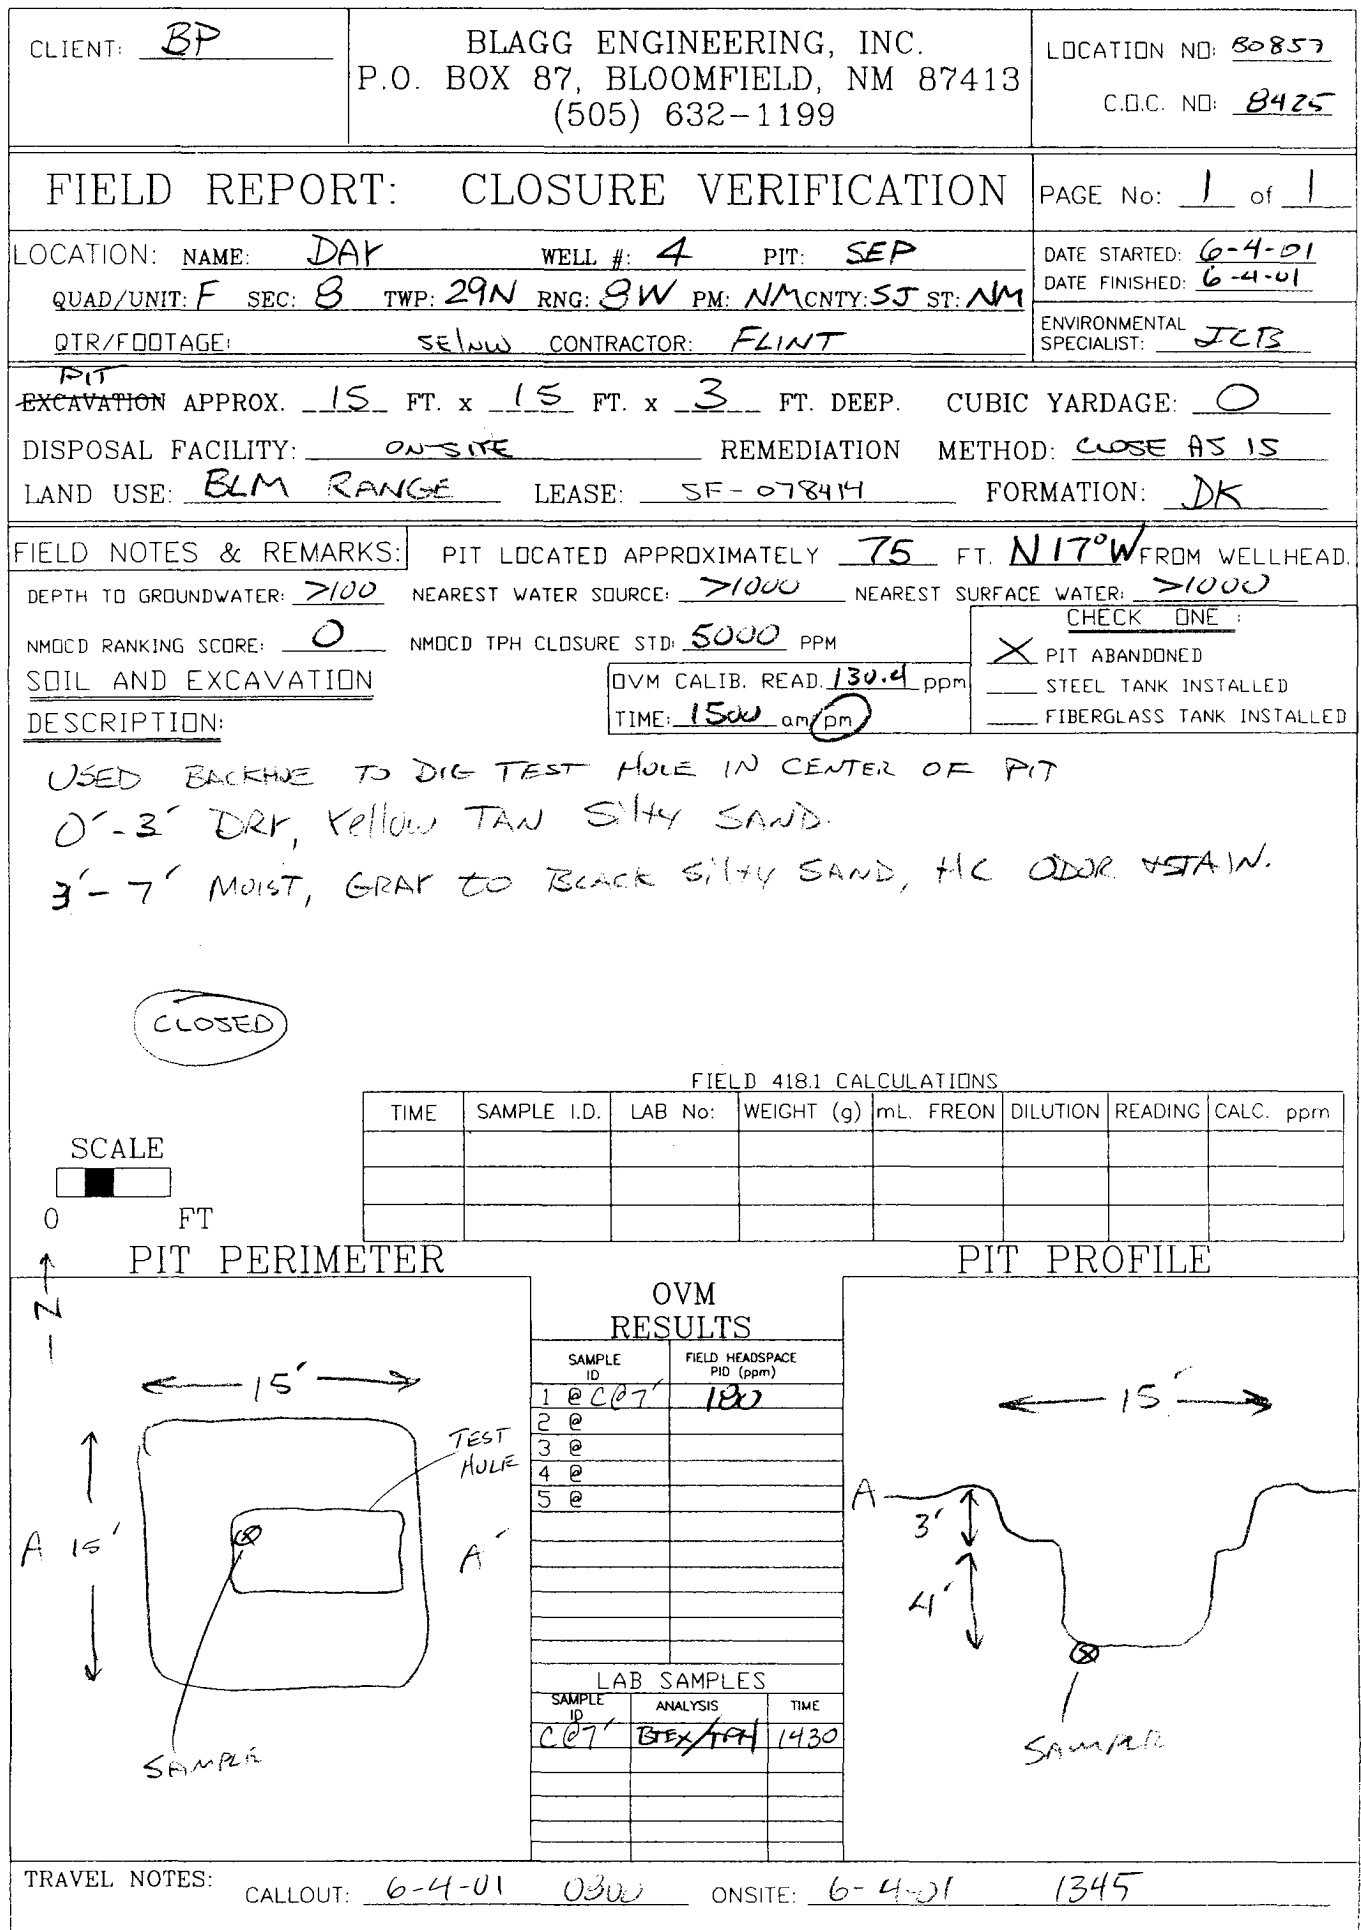 CLIENT: BP
BLAGG ENGINEERING, INC.
P.O. BOX 87, BLOOMFIELD, NM 87413
(505) 632-1199
LOCATION NO: B0857
C.O.C. NO: 8425
FIELD REPORT: CLOSURE VERIFICATION
PAGE No: 1 of 1
LOCATION: NAME: DAY WELL #: 4 PIT: SEP
QUAD/UNIT: F SEC: 8 TWP: 29N RNG: 8W PM: NM CNTY: SJ ST: NM
QTR/FOOTAGE: SE/NW CONTRACTOR: FLINT
DATE STARTED: 6-4-01
DATE FINISHED: 6-4-01
ENVIRONMENTAL
SPECIALIST: JCB
PIT
EXCAVATION APPROX. 15 FT. x 15 FT. x 3 FT. DEEP. CUBIC YARDAGE: 0
DISPOSAL FACILITY: ON-SITE REMEDIATION METHOD: CLOSE AS IS
LAND USE: BLM RANGE LEASE: SF-078414 FORMATION: DK
FIELD NOTES & REMARKS: PIT LOCATED APPROXIMATELY 75 FT. N17°W FROM WELLHEAD.
DEPTH TO GROUNDWATER: >100 NEAREST WATER SOURCE: >1000 NEAREST SURFACE WATER: >1000
NMOCD RANKING SCORE: 0 NMOCD TPH CLOSURE STD: 5000 PPM
CHECK ONE :
X PIT ABANDONED
STEEL TANK INSTALLED
FIBERGLASS TANK INSTALLED
SOIL AND EXCAVATION
DESCRIPTION:
OVM CALIB. READ. 130.4 ppm
TIME: 1500 am/pm
USED BACKHOE TO DIG TEST HOLE IN CENTER OF PIT
0'-3' DRY, Yellow TAN Silty SAND.
3'-7' MOIST, GRAY TO BLACK Silty SAND, HC ODOR & STAIN.
CLOSED
FIELD 418.1 CALCULATIONS
TIME SAMPLE I.D. LAB No: WEIGHT (g) mL. FREON DILUTION READING CALC. ppm
SCALE
0 FT
N
PIT PERIMETER
15'
TEST
HOLE
A 15' A'
SAMPLE
OVM
RESULTS
SAMPLE
ID
FIELD HEADSPACE
PID (ppm)
1 @ C@7' 180
2 @
3 @
4 @
5 @
LAB SAMPLES
SAMPLE
ID
ANALYSIS TIME
C@7' BTEX/TPH 1430
PIT PROFILE
15'
A
3'
4'
SAMPLE
TRAVEL NOTES: CALLOUT: 6-4-01 0800 ONSITE: 6-4-01 1345